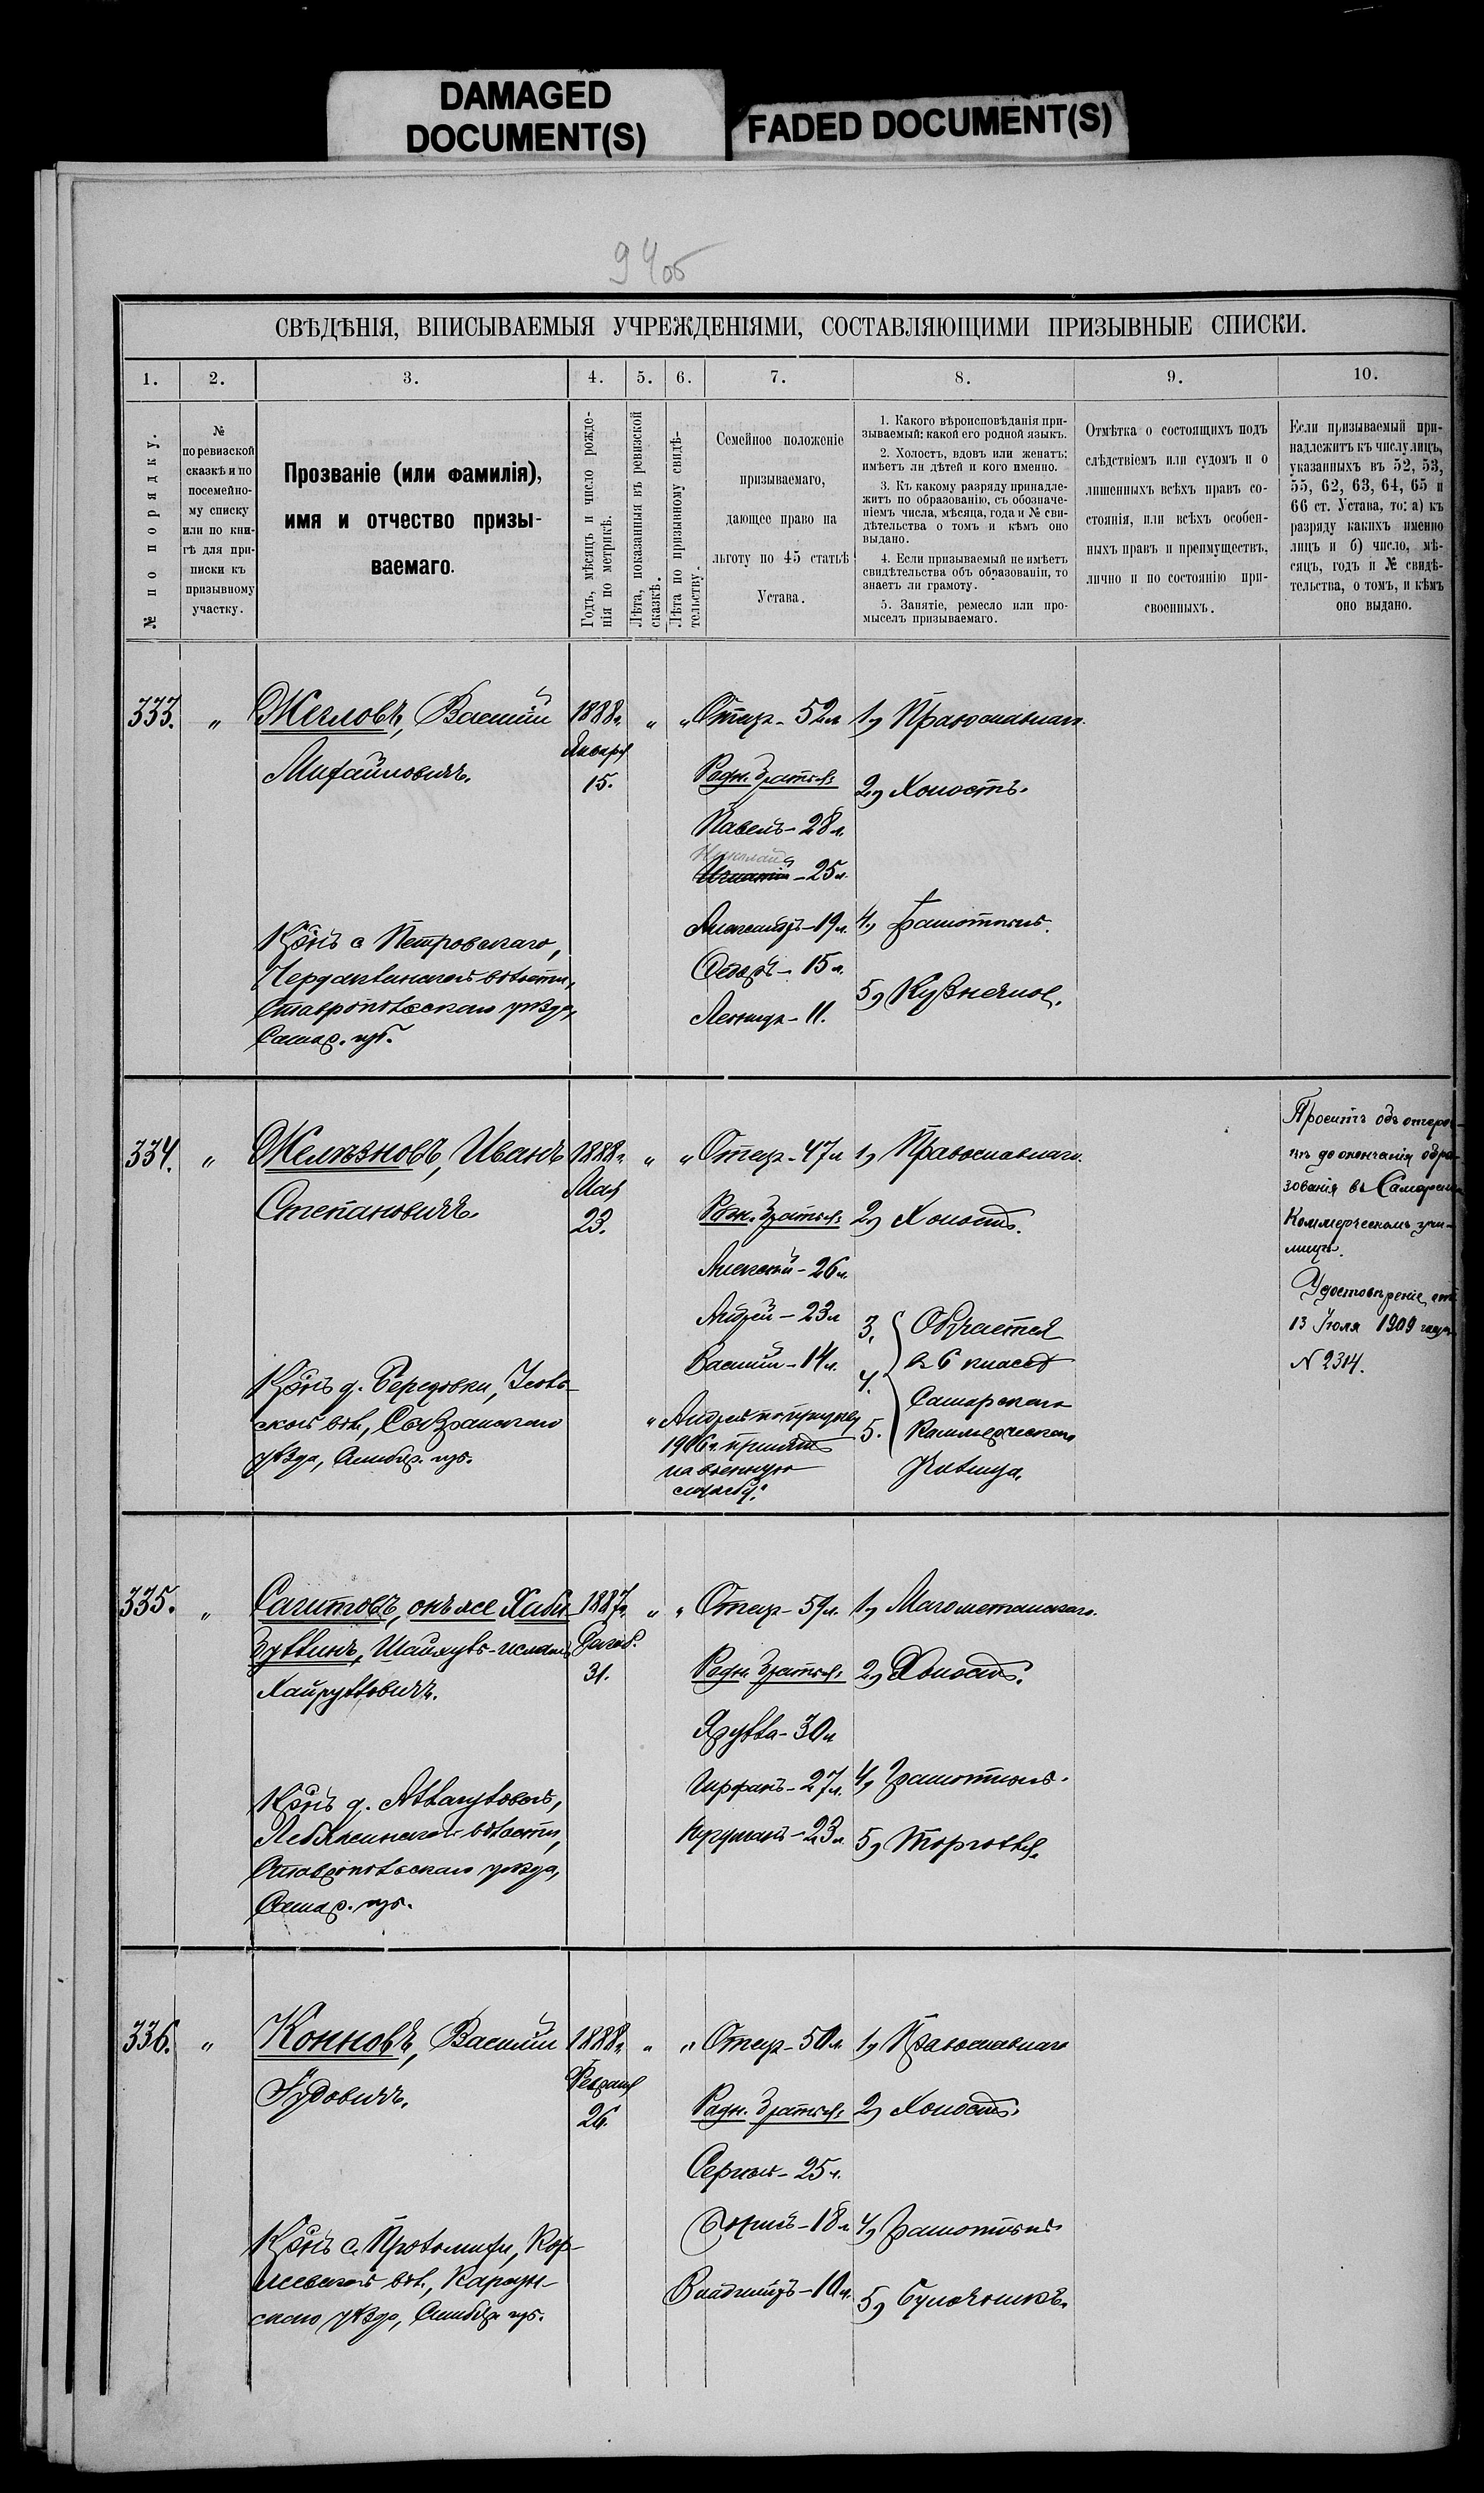 DAMAGED
DOCUMENT(S)
FADED DOCUMENT(S)
94об
СВѢДѢНІЯ, ВПИСЫВАЕМЫЯ УЧРЕЖДЕНІЯМИ, СОСТАВЛЯЮЩИМИ ПРИЗЫВНЫЕ СПИСКИ.
1.
2.
3.
4.
5.
6.
7.
8.
9.
10.
№ по порядку.
№
по ревизской
сказкѣ и по
посемейно-
му списку
или по кни-
гѣ для при-
писки къ
призывному
участку.
Прозваніе (или фамилія),
имя и отчество призы-
ваемаго.
Годъ, мѣсяцъ и число рожде-
нія по метрикѣ.
Лѣта, показанныя въ ревизской
сказкѣ.
Лѣта по призывному свидѣ-
тельству.
Семейное положеніе
призываемаго,
дающее право на
льготу по 45 статьѣ
Устава.
1. Какого вѣроисповѣданія при-
зываемый: какой его родной языкъ.
2. Холостъ, вдовъ или женатъ;
имѣетъ ли дѣтей и кого именно.
3. Къ какому разряду принадле-
житъ по образованію, съ обозначе-
ніемъ числа, мѣсяца, года и № сви-
дѣтельства о томъ и кѣмъ оно
выдано.
4. Если призываемый не имѣетъ
свидѣтельства объ образованіи, то
знаетъ ли грамоту.
5. Занятіе, ремесло или про-
мыселъ призываемаго.
Отмѣтка о состоящихъ подъ
слѣдствіемъ или судомъ и о
лишенныхъ всѣхъ правъ со-
стоянія, или всѣхъ особен-
ныхъ правъ и преимуществъ,
лично и по состоянію при-
своенныхъ.
Если призываемый при-
надлежитъ къ числу лицъ,
указанныхъ въ 52, 53,
55, 62, 63, 64, 65 и
66 ст. Устава, то: а) къ
разряду какихъ именно
лицъ и б) число, мѣ-
сяцъ, годъ и № свидѣ-
тельства, о томъ, и кѣмъ
оно выдано.
333.
"
Жегловъ, Василій
Михайловичъ.
Кр-нъ с Петровскаго,
Чердаклинской волости,
Ставропольскаго уѣзда,
Самар. губ.
1888г.
Января
15.
"
"
Отецъ - 52л
Родн. братья:
Павелъ - 28л.
Николай
Игнатій - 25л.
Александръ - 19л.
Ѳедоръ - 15л.
Леонидъ - 11.
1) Православнаго.
2) Холостъ.
4) Грамотный.
5) Кузнецъ.
334.
"
Желѣзновъ, Иванъ
Степановичъ.
Кр-нъ д. Бередовки,
вол., Сызранскаго
уѣзда, Симбир. губ.
1888г.
Мая
23.
"
"
Отецъ - 47л
Родн. братья:
Алексѣй - 26л.
Андрей - 23л
Василій - 14л.
"Андрей по призыву
1906г. принятъ
на военную
службу."
1) Православнаго.
2) Холостъ.
3.
4.
5.
Обучается
въ 6 классѣ
Самарскаго
Коммерческаго
Училища.
Проситъ объ отсроч-
кѣ до окончанія обра-
зованія въ Самарском
Коммерческомъ учи-
лищѣ.
Удостовѣреніе отъ
13 Іюля 1909 года
№ 2314.
335.
"
Сагитовъ, онъ же Хаби-
буллинъ, Шайхулъ-исламъ
Хайрулловичъ.
Кр-нъ д. Аллагуловой,
Лебяжинской волости,
Ставропольскаго уѣзда,
Самар. губ.
1887г.
Декаб.
31.
"
"
Отецъ - 59л.
Родн. братья:
Ярулла - 30л
Гирфанъ - 27л.
Нугуманъ - 23л.
1) Магометанскаго.
2) Холостъ.
4) Грамотный.
5) Торговля.
336.
"
Конновъ, Василій
Іудовичъ.
Кр-нъ с. Проломихи, Кор-
жевской вол., Карсун-
скаго уѣзда, Симбир. губ.
1888г.
Февраля
26.
"
"
Отецъ - 50л.
Родн. братья:
Сергѣй - 25л.
Борисъ - 18л
Владиміръ - 10л.
1) Православнаго
2) Холостъ.
4) Грамотный
5) Булочникъ.